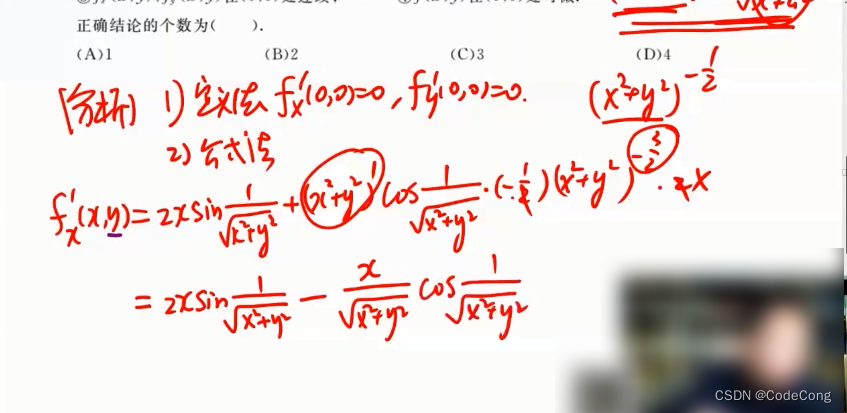 正确结论的个数为( ).
(A)1 (B)2 (C)3 (D)4
[分析] 1) 定义法 f'x(0,0)=0, f'y(0,0)=0. (x²+y²)^(-1/2)
2) 公式法
f'x(x,y)=2x sin 1/√(x²+y²) + (x²+y²)¹ cos 1/√(x²+y²) · (-1/2)(x²+y²)^(-3/2) · 2x
= 2x sin 1/√(x²+y²) - x/√(x²+y²) cos 1/√(x²+y²)
CSDN @CodeCong